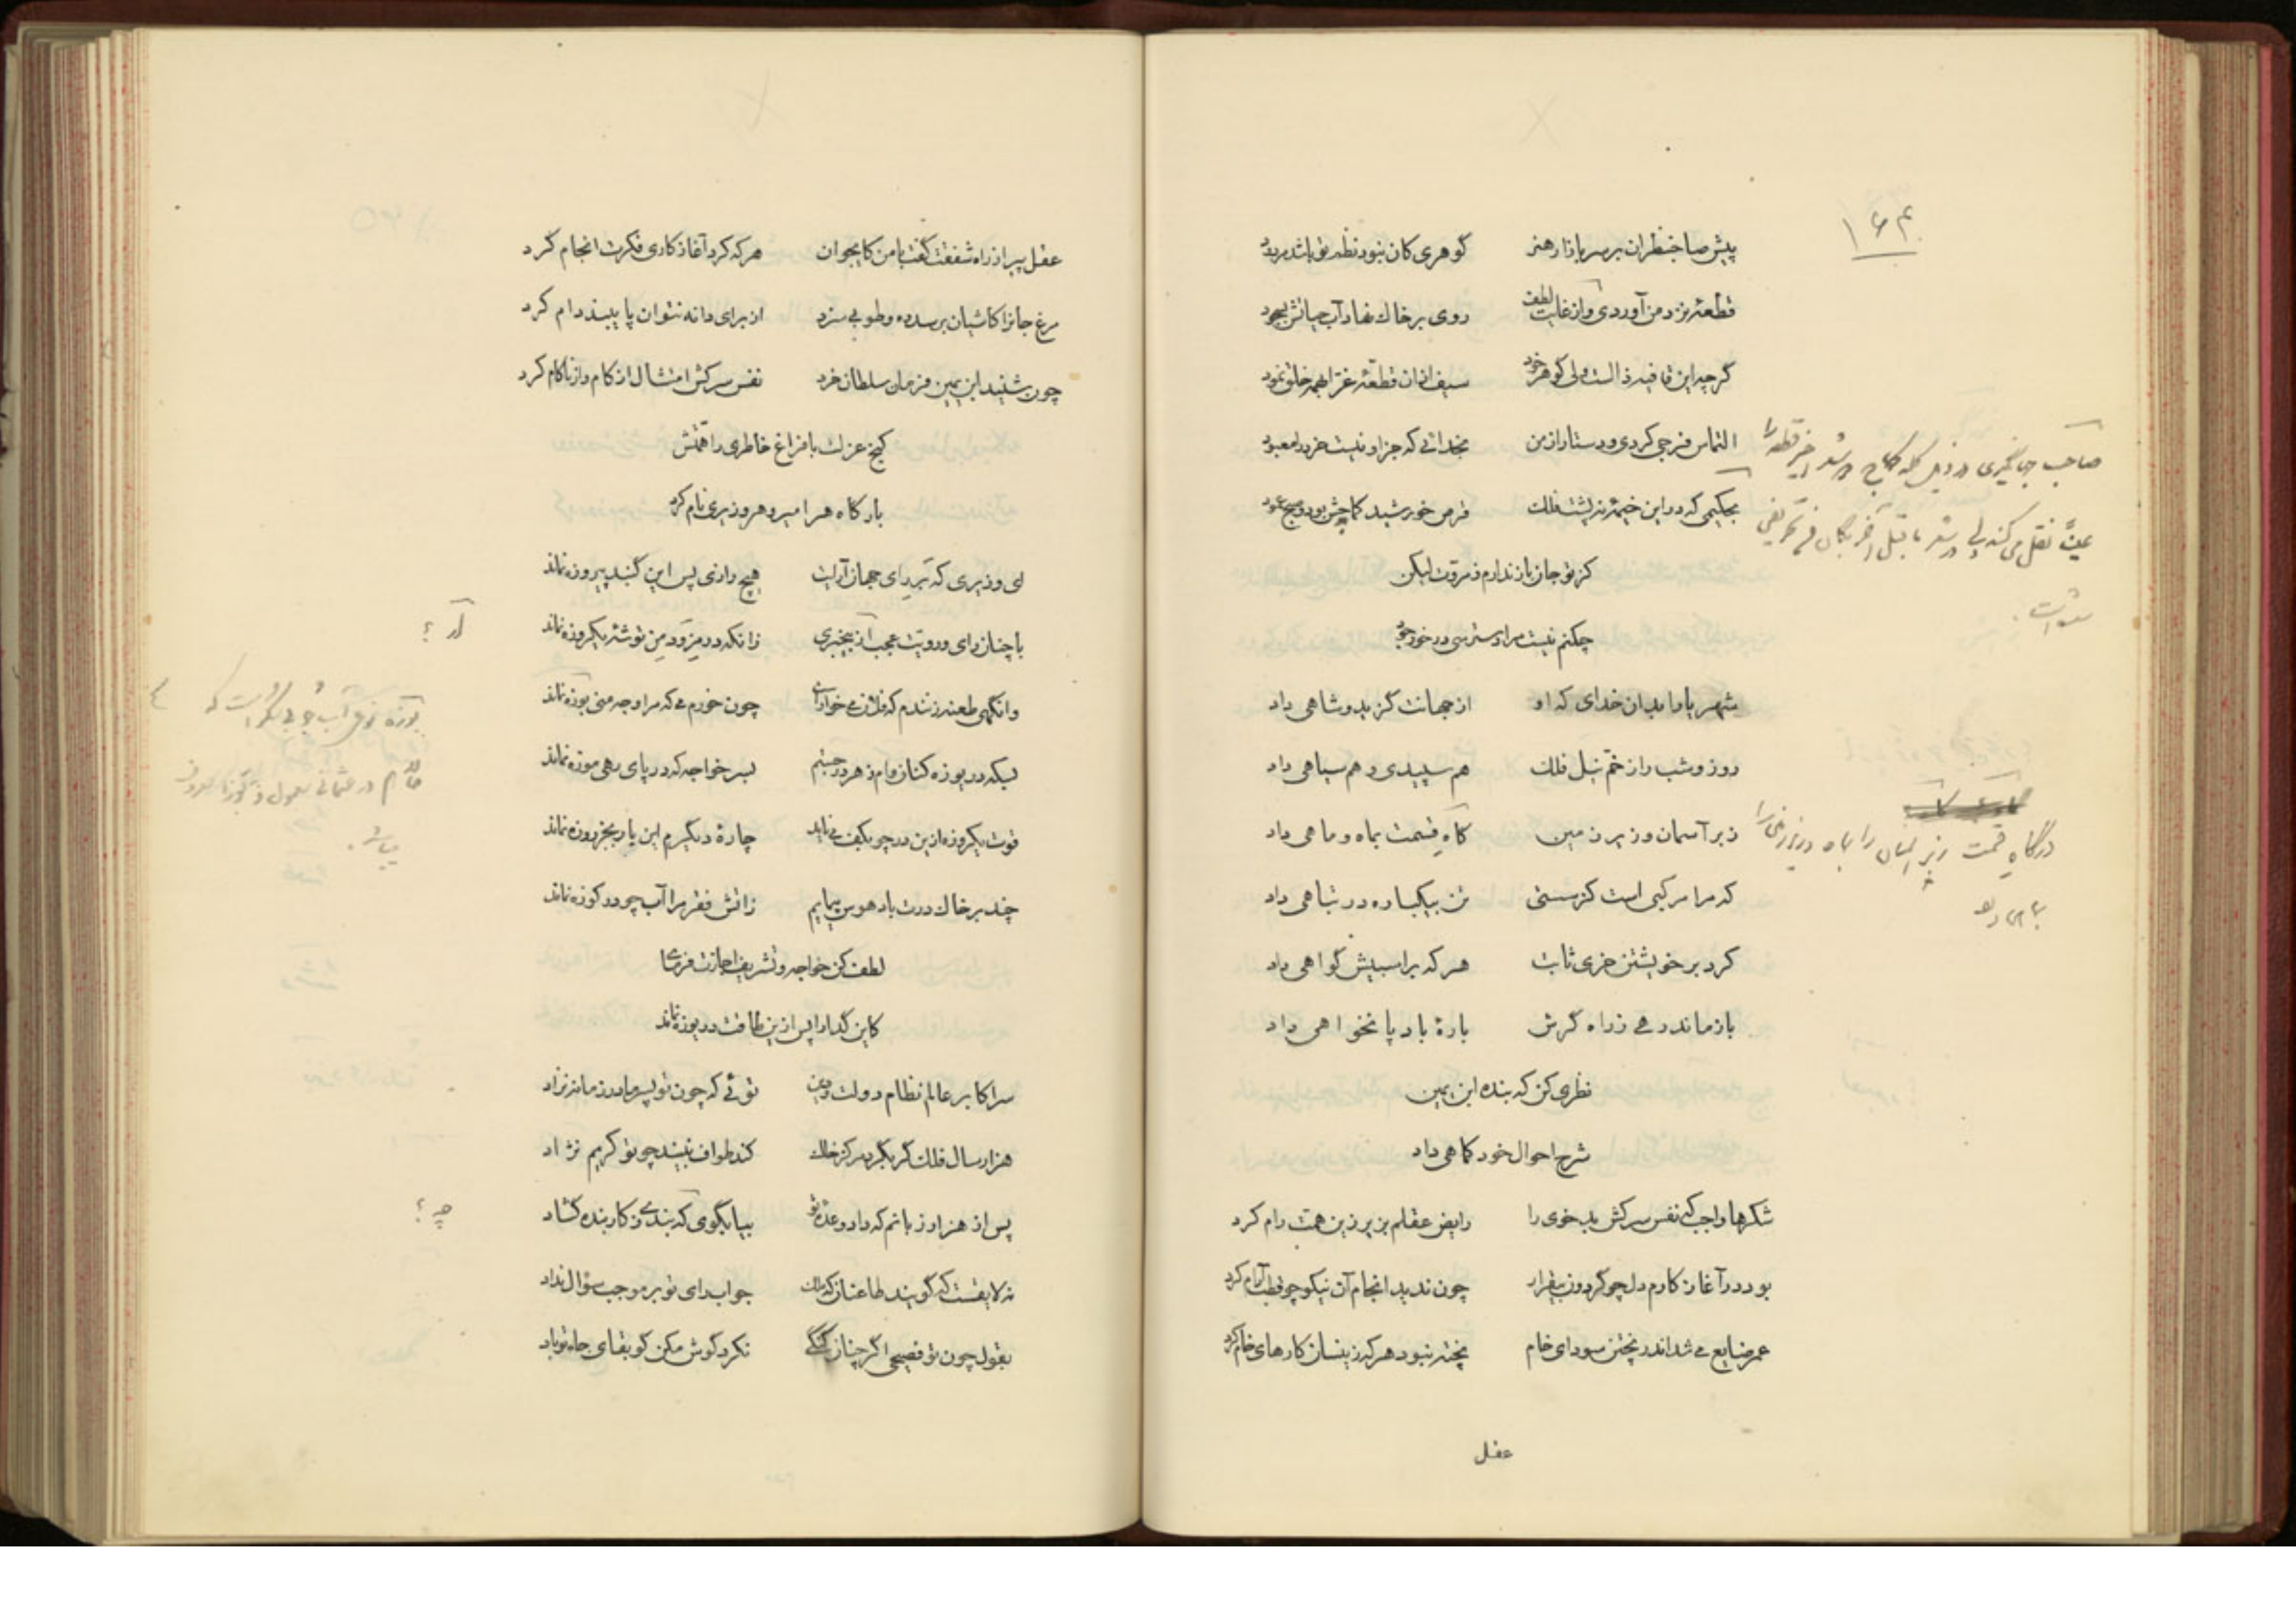 ۱۶۴
پیش صاحبنظران بر سر بازار هنر گوهری کان نبود نظم تو باشد مردود
قطعهٔ نزد من آوردی و از غایت لطف روی بر خاک نهاد آب حیاتش بسجود
گرچه این قافیه ذالست ولی گوهر خود سیف ازان قطعهٔ غرا بهمه خلق نمود
التماس فرجی کردی و دستار از من بخدائی که جز او نیست خرد را معبود
بحکیمی که در این خیمهٔ نه پشت فلک قرص خورشید کماجش بود و صبح عمود
کز تو جان باز ندارم ز مروت لیکن
چکنم نیست مرا دسترسی در خور جود
شهریارا بدان خدای که او از جهانت گزید و شاهی داد
روز و شب را ز ختم نیل فلک هم سپیدی و هم سیاهی داد
زبر آسمان و زیر زمین گاه قسمت بماه و ماهی داد
که مرا مرکبی است کز سستی تن بیکباره در تباهی داد
کرد بر خویشتن خری ثابت هر که بر اسبیش گواهی داد
باز ماند رهی ز راه گرش بارهٔ باد پا نخواهی داد
نظری کن که بنده ابن یمین
شرح احوال خود کماهی داد
شکرها واجب که نفس سرکش بد خوی را رایض عقلم بزیر زین همت رام کرد
بود در آغاز کارم دل چو گردون بیقرار چون ندید انجام آن نیکو چو قطب آرام کرد
عمر ضایع می شد اندر پختن سودای خام پخته نبود هر که زینسان کارهای خام کرد
عقل
صاحب جهانگیری در ذیل کلمه کماج در شعر اخیر قطعه را
عیناً نقل می کند ولی در شعر ما قبل آخر
درگاه قسمت زبر آسمان را بماه و زیر زمین را
بماهی داد
عقل پیر از راه شفقت گفت با من کایجوان هر که کرد آغاز کاری فکرت انجام کرد
مرغ جانرا کاشیان بر سدره و طوبی سزد از برای دانه نتوان پایبند دام کرد
چون شنید ابن یمین فرمان سلطان خرد نفس سرکش امتثال از کام و از ناکام کرد
کنج عزلت با فراغ خاطری را همتش
بارگاه هر امیر و هر وزیری نام کرد
ای وزیری که بر رای جهان آرایت هیچ رازی پس این گنبد پیروزه نماند
با چنان رای و رویت عجب از بیخبری زانکه در مزود من توشهٔ یکروزه نماند
وانگهی طعنه زنندم که فلان می خوارست چون خورم می که مرا وجه منی بوزه نماند
بیکه دریوزه کنان وام ز هر در جستم بسر خواجه که در پای رهی موزه نماند
قوت یکروزه ازین در چو بکف می ناید چارهٔ دیگرم این بار بجز روزه نماند
چند بر خاک درت باد هوس پیمایم زاتش فقر مرا آب چو در کوزه نماند
لطف کن خواجه و تشریف اجازت فرمای
کاین گدا را پس ازین طاقت دریوزه نماند
سر اکابر عالم نظام دولت و دین توئی که چون تو پسر مادر زمانه نزاد
هزار سال فلک گر بگرد مرکز خاک کند طواف نبیند چو تو کریم نژاد
پس از هزار زبانم که داد وعدهٔ تو بیا بگوی که بندی ز کار بنده گشاد
نه لایقست که گویند طاعنان که ملک جواب رای تو بر موجب سؤال نداد
بقول چون تو فصیحی اگر چنان گنگی نکرد گوش مکن کو بقای جاه تو باد
از ؟
بوزه نوع آب جو است که
در عثمانی معمول و
میباشد .
چه ؟